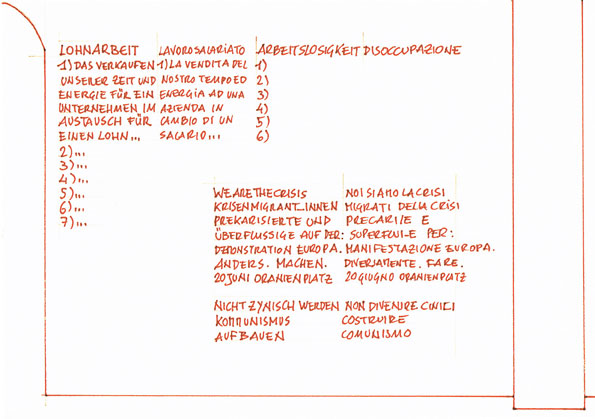 LOHNARBEIT
1) DAS VERKAUFEN
UNSERER ZEIT UND
ENERGIE FÜR EIN
UNTERNEHMEN IM
AUSTAUSCH FÜR
EINEN LOHN...
2)...
3)...
4)...
5)...
6)...
7)...
LAVORO SALARIATO
1) LA VENDITA DEL
NOSTRO TEMPO ED
ENERGIA AD UNA
AZIENDA IN
CAMBIO DI UN
SALARIO...
ARBEITSLOSIGKEIT DISOCCUPAZIONE
1)
2)
3)
4)
5)
6)
WE ARE THE CRISIS
KRISENMIGRANT_INNEN
PREKARISIERTE UND
ÜBERFLÜSSIGE AUF DER:
DEMONSTRATION EUROPA.
ANDERS. MACHEN.
20 JUNI ORANIENPLATZ
NOI SIAMO LA CRISI
MIGRATI DELLA CRISI
PRECARI/E E
SUPERFLUI-E PER:
MANIFESTAZIONE EUROPA.
DIVERSAMENTE. FARE.
20 GIUGNO ORANIENPLATZ
NICHT ZYNISCH WERDEN
KOMMUNISMUS
AUFBAUEN
NON DIVENIRE CINICI
COSTRUIRE
COMUNISMO